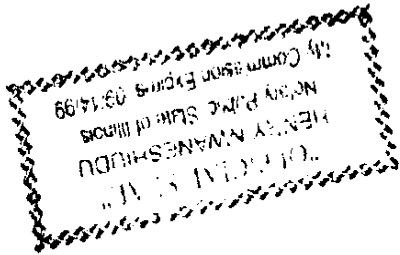 "OFFICIAL SEAL"
HENRY NWANESHIUDU
Notary Public State of Illinois
My Commission Expires 09/14/99